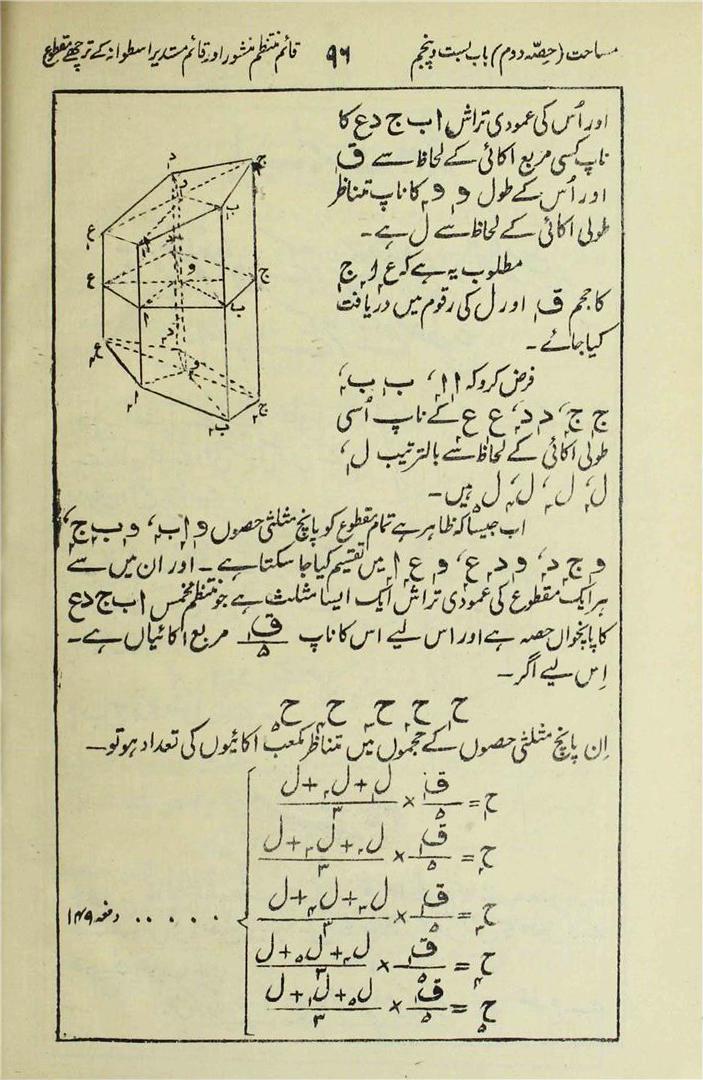 مساحت (حصّہ دوم) باب بست و پنجم ۹۶ قائم منتظم منشور اور قائم مستدیر اسطوانہ کے ترچھے مقطوع
اور اُس کی عمودی تراش ا ب ج د ع کا
ناپ کسی مربع اکائی کے لحاظ سے ق
اور اُس کے طول و و کا ناپ متناظر
طولی اکائی کے لحاظ سے ل ہے۔
مطلوب یہ ہے کہ ع ا ج
کا حجم ق اور ل کی رقوم میں دریافت
کیا جائے۔
فرض کرو کہ ا ا، ب ب،
ج ج، د د، ع ع کے ناپ اُسی
طولی اکائی کے لحاظ سے بالترتیب ل₁،
ل₂، ل₃، ل₄، ل₅ ہیں۔
اب جیسا کہ ظاہر ہے تمام مقطوع کو پانچ مثلثی حصوں و ا ب، و ب ج،
و ج د، و د ع، و ع ا میں تقسیم کیا جا سکتا ہے۔ اور ان میں سے
ہر ایک مقطوع کی عمودی تراش ایک ایسا مثلث ہے جو منتظم مخمس ا ب ج د ع
کا پانچواں حصہ ہے اور اس لیے اس کا ناپ ق/۵ مربع اکائیاں ہے۔
اِس لیے اگر۔
ح₁ ح₂ ح₃ ح₄ ح₅
اِن پانچ مثلثی حصوں کے حجموں میں متناظر مکعب اکائیوں کی تعداد ہو تو۔
ح₁ = ق/۵ × (ل₁ + ل₂ + ل)/۳
ح₂ = ق/۵ × (ل₂ + ل₃ + ل)/۳
ح₃ = ق/۵ × (ل₃ + ل₄ + ل)/۳ ..... دفعہ ۱۴۹
ح₄ = ق/۵ × (ل₄ + ل₅ + ل)/۳
ح₅ = ق/۵ × (ل₅ + ل₁ + ل)/۳